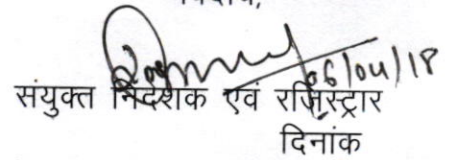 06/04/18
संयुक्त निदेशक एवं रजिस्ट्रार
दिनांक